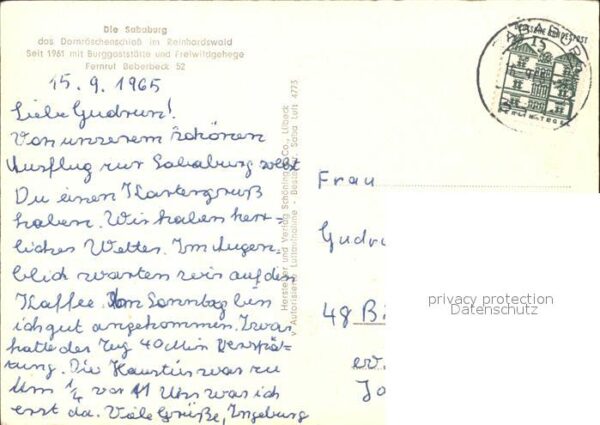 Die Sababurg
das Dornröschenschloß im Reinhardswald
Seit 1961 mit Burggaststätte und Freiwildgehege
Fernruf Beberbeck 52
15.9.1965
Liebe Gudrun!
Von unserem schönen
Ausflug zur Sababurg sollst
Du einen Kartengruß
haben. Wir haben herr-
liches Wetter. Im Augen-
blick warten wir auf den
Kaffee. Am Sonntag bin
ich gut angekommen. Zwar
hatte der Zug 40 Min Verspä-
tung. Die Haustür war zu
Um 1/4 vor 11 Uhr war ich
erst da. Viele Grüße, Ingeburg
Hersteller und Verlag Schöning & Co., Lübeck
Luft 4773
SABABURG
DEUTSCHE BUNDESPOST
Frau
Gudru
48 Bi
privacy protection
Datenschutz